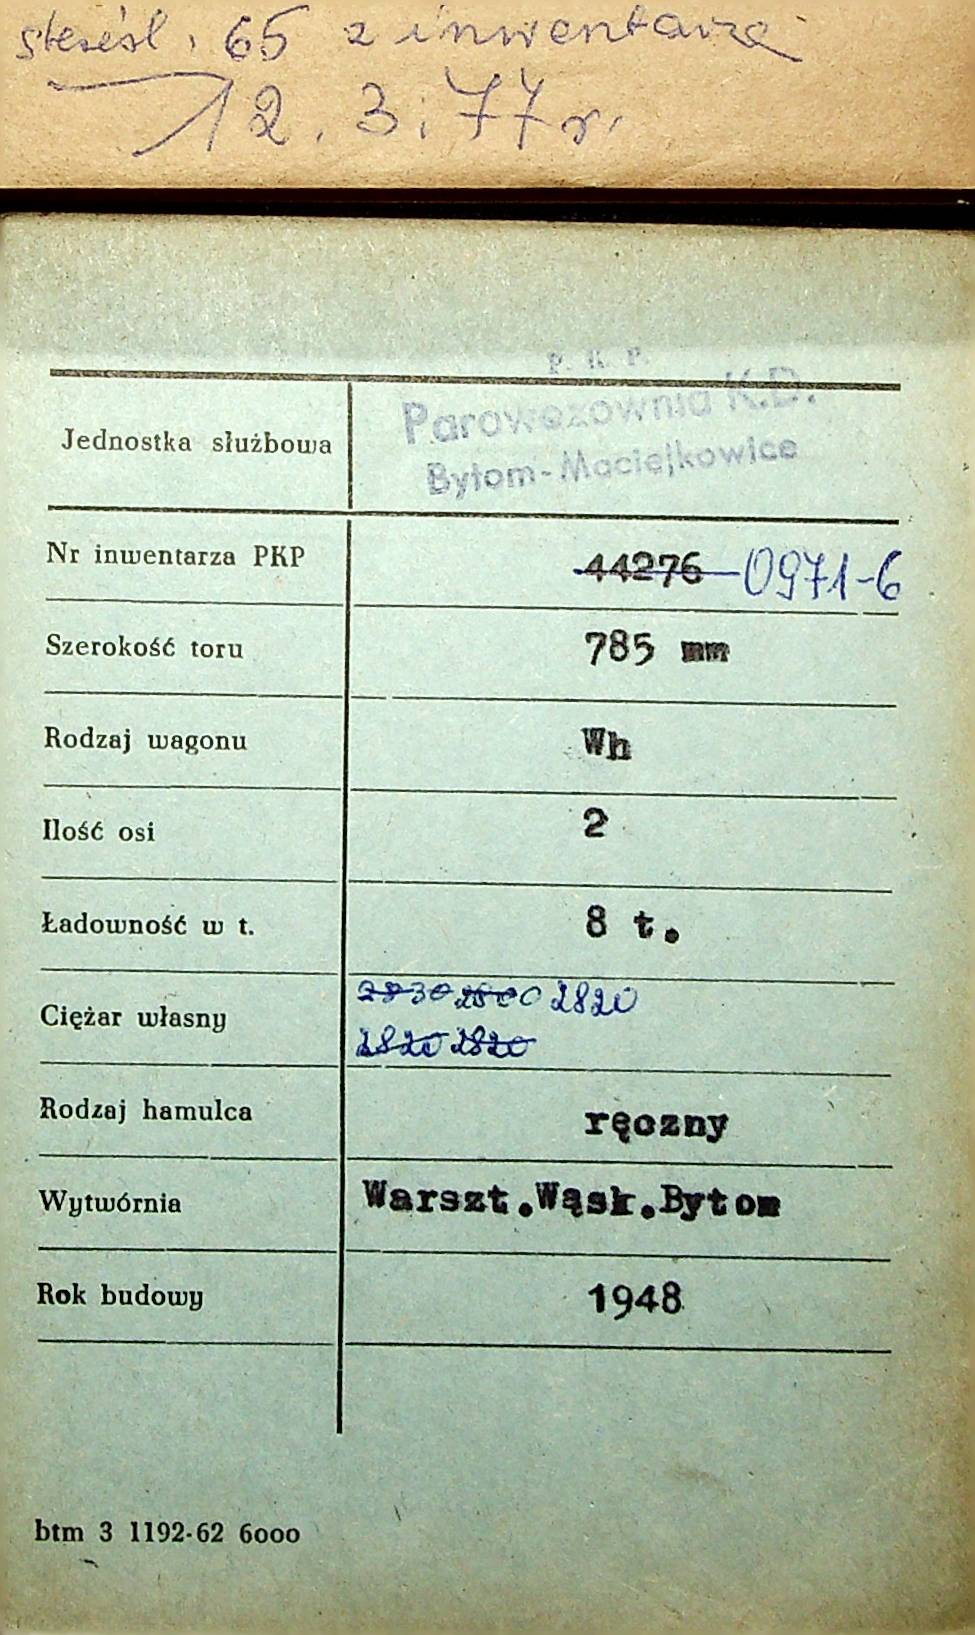 skreśl. 65 z inwentarza
12.3.77 r.
P. K. P.
Parowozownia K.D.
Bytom-Maciejkowice
Jednostka służbowa
Nr inwentarza PKP 44276 0971-6
Szerokość toru 785 mm
Rodzaj wagonu Wh
Ilość osi 2
Ładowność w t. 8 t.
Ciężar własny 2830 2800 2820
2820 2820
Rodzaj hamulca ręczny
Wytwórnia Warszt.Wąsk.Bytom
Rok budowy 1948
btm 3 1192-62 6000